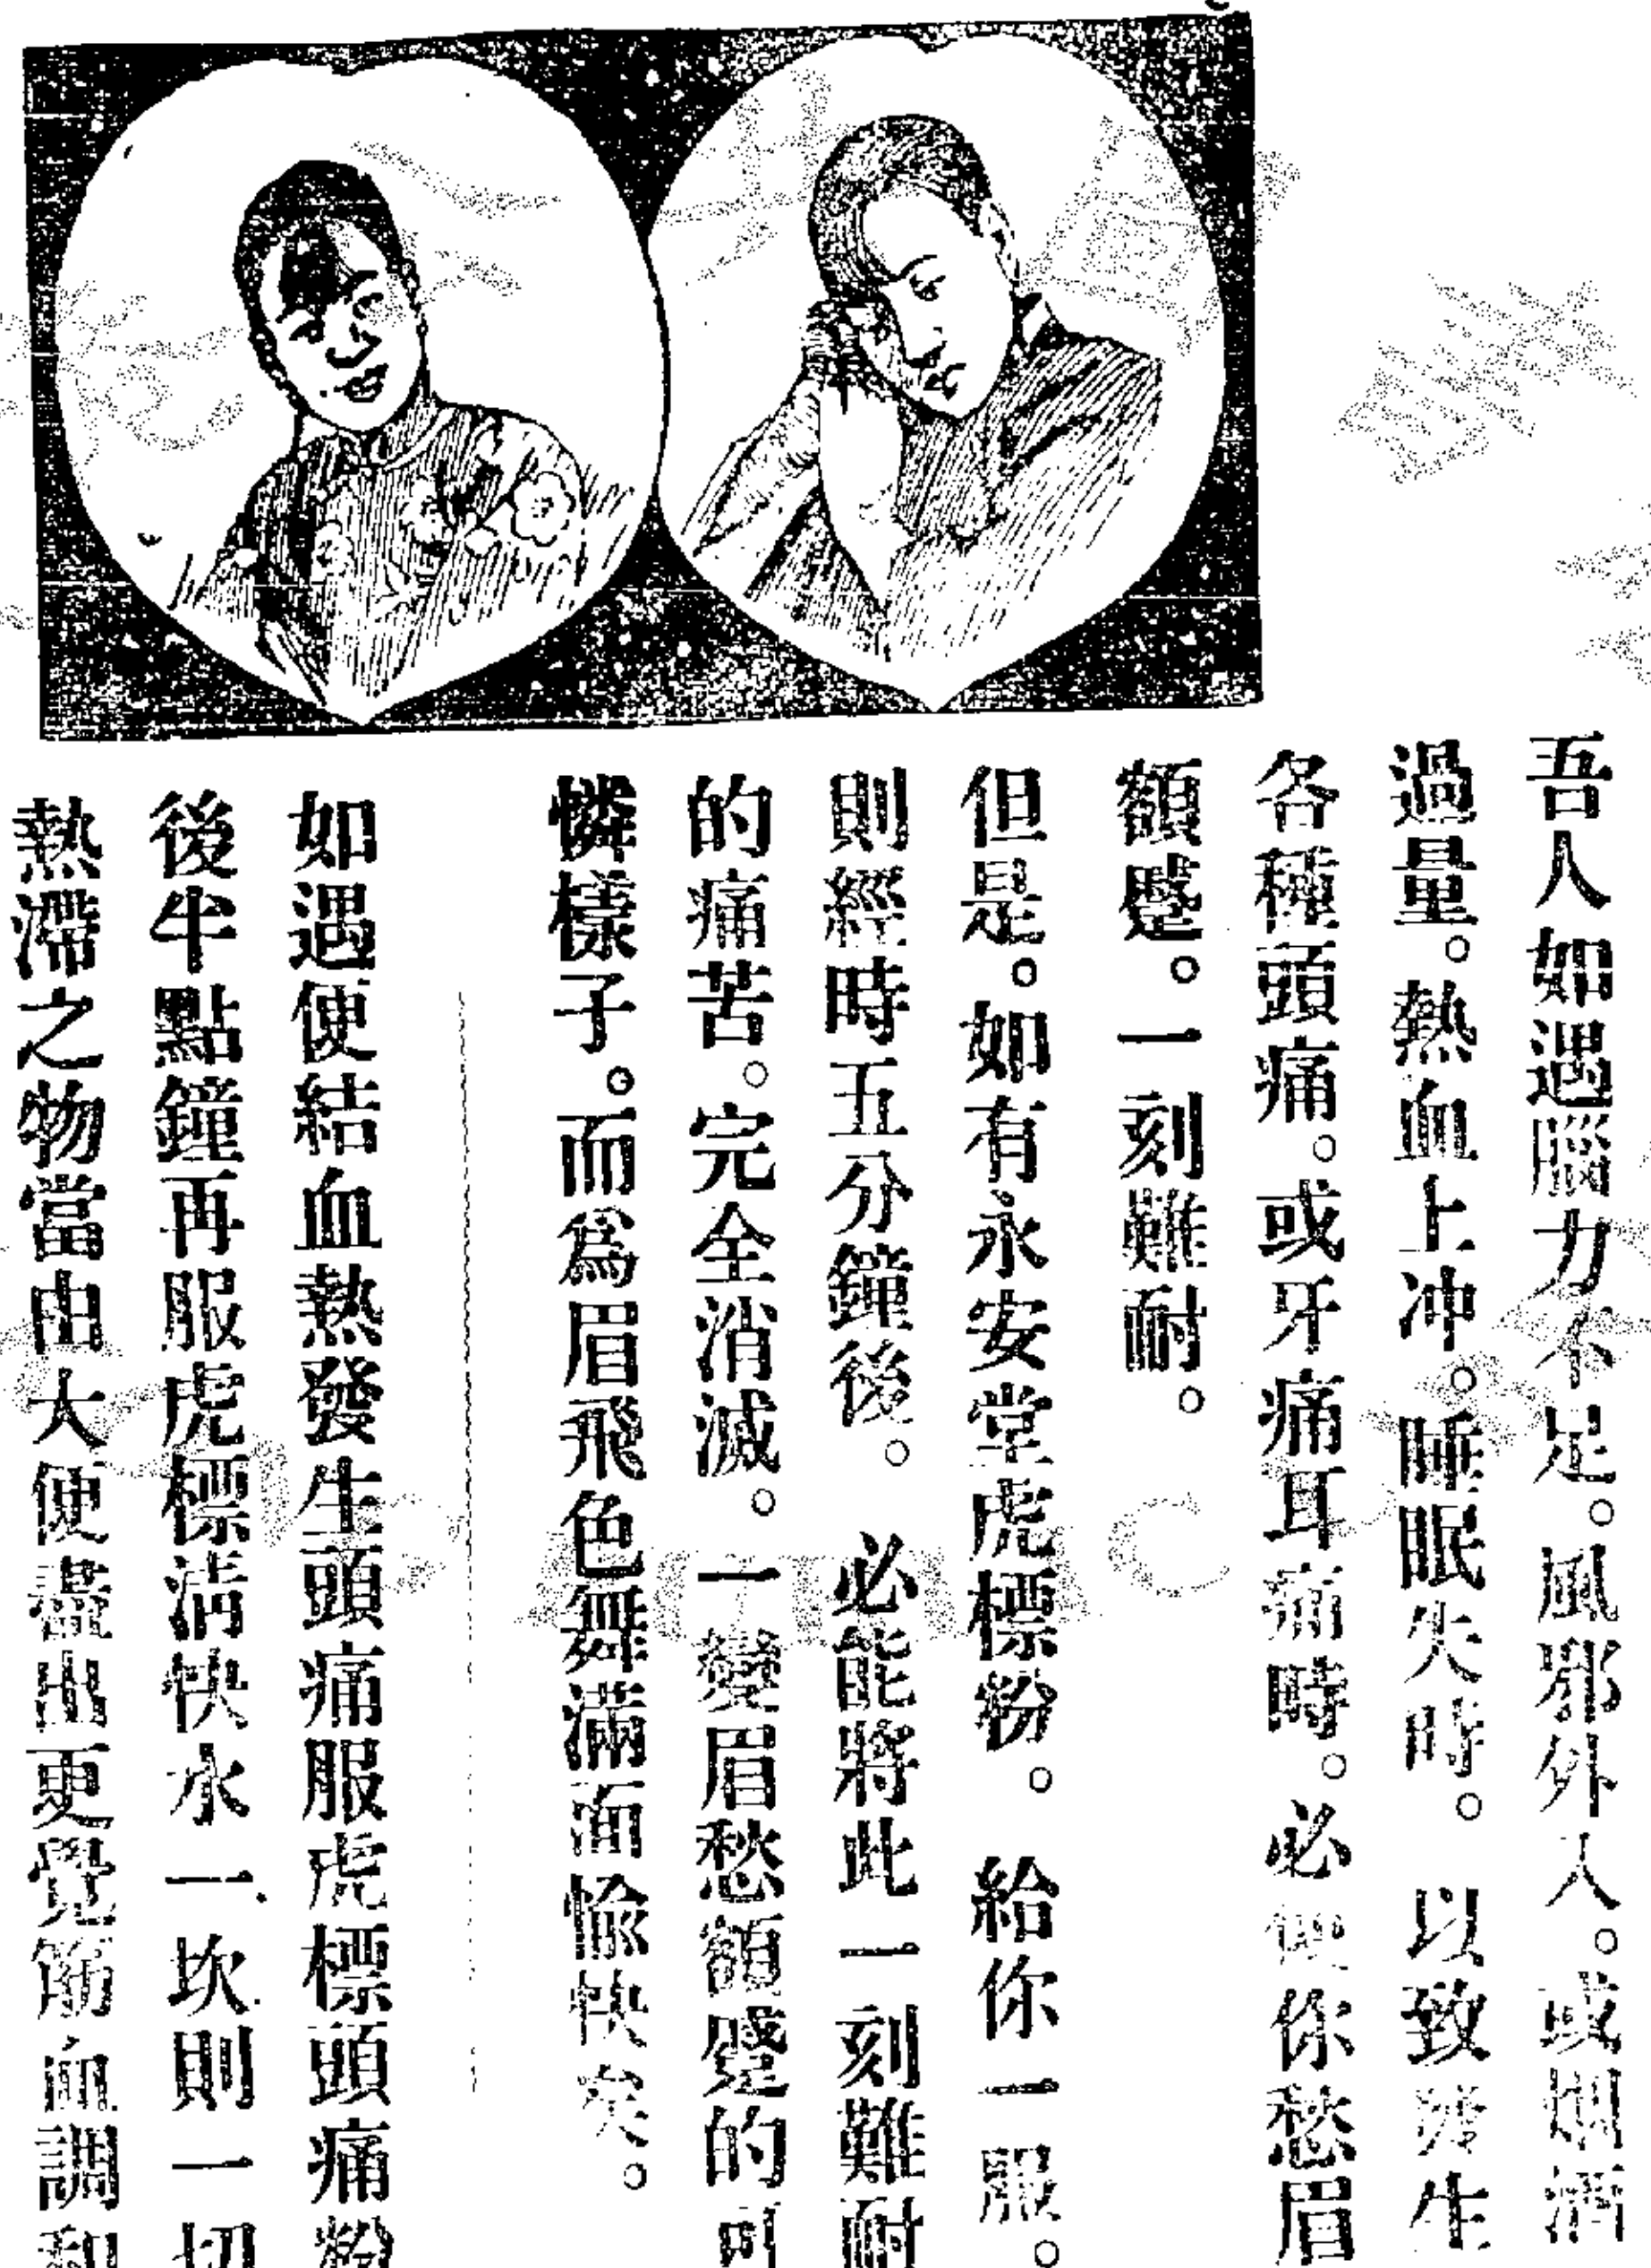 吾人如遇腦力不足。風邪外入。或烟酒
過量。熱血上冲。睡眠失時。以致發生
各種頭痛。或牙痛耳痛時。必使你愁眉
額蹙。一刻難耐。
但是。如有永安堂虎標粉。給你一服。
則經時五分鐘後。必能將此一刻難耐
的痛苦。完全消滅。一變眉愁額蹙的可
憐樣子。而爲眉飛色舞滿面愉快矣。
如遇便結血熱發生頭痛服虎標頭痛粉
後半點鐘再服虎標清快水一次則一切
熱滯之物當由大便盡出更覺筋血調和